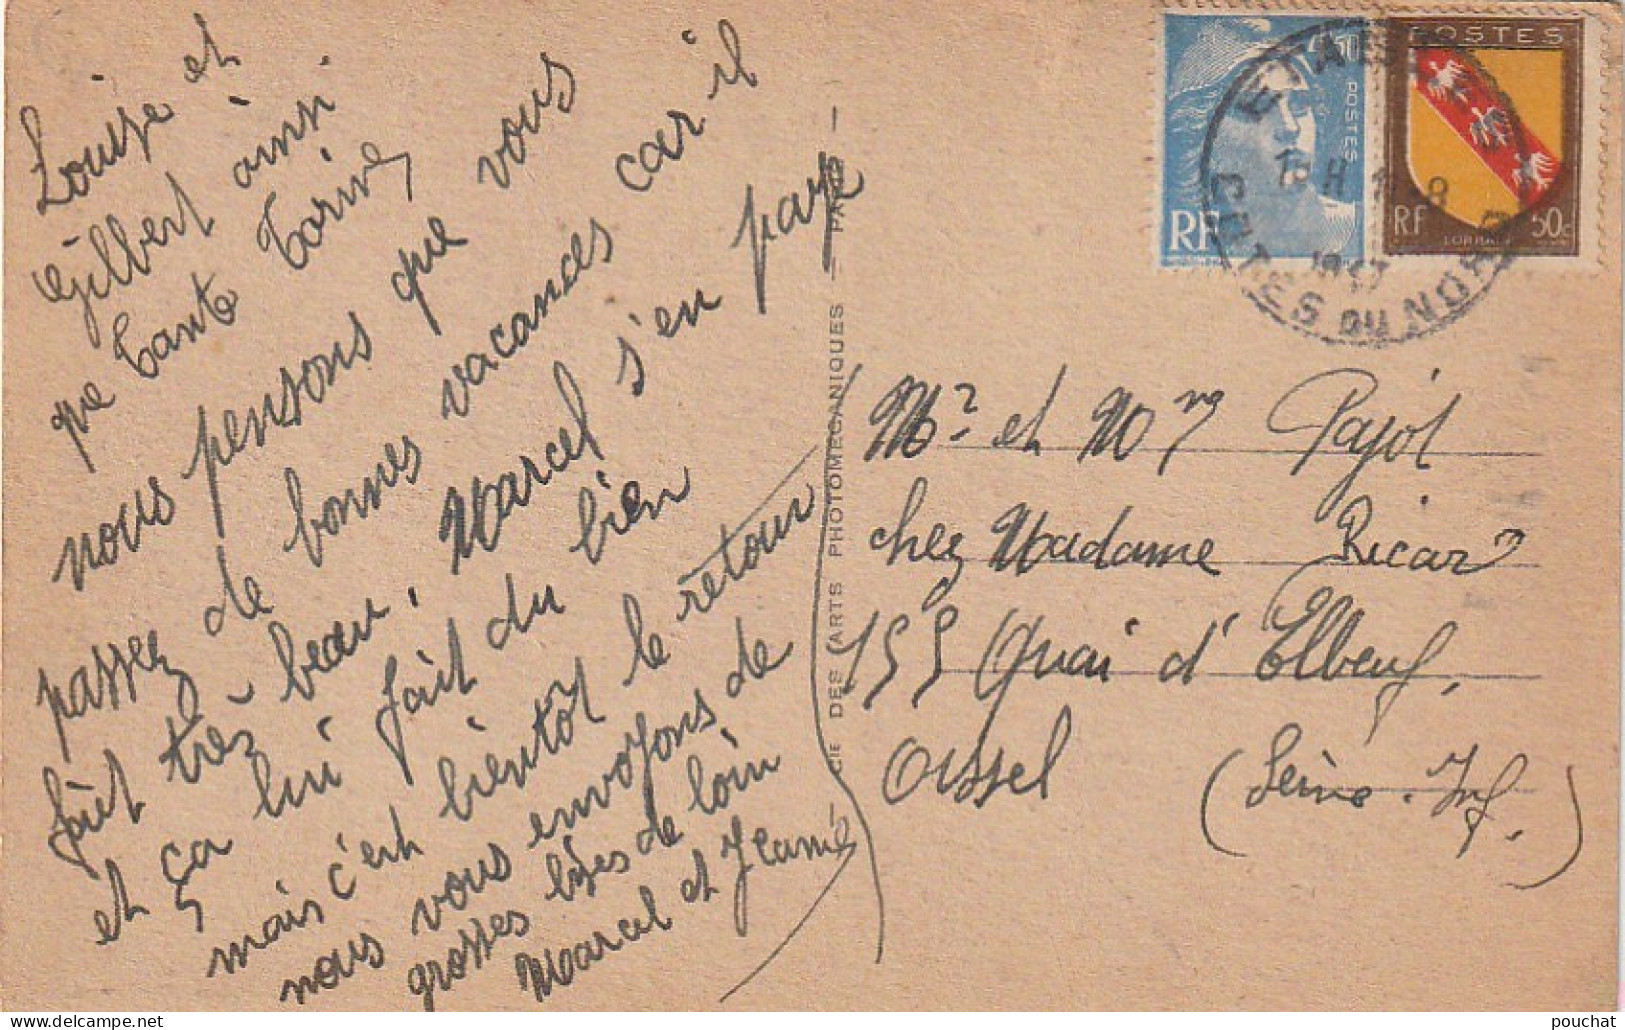 Louise et
Gilbert ainsi
que Tante
nous pensons que vous
passez de bonnes vacances car il
fait très beau, Marcel s'en paye
et ça lui fait du bien
mais c'est bientôt le retour
nous vous envoyons de
grosses bises de loin
Marcel et Jeanne
CIE DES ARTS PHOTOMECANIQUES — PARIS —
POSTES
RF
POSTES
RF
LORRAINE
50c
ETABLES
18
1947
COTES DU NORD
Mr et Mme Pajot
chez Madame Ricar
155 Quai d'Elbeuf,
Oissel (Seine-Inf.)
pouchat